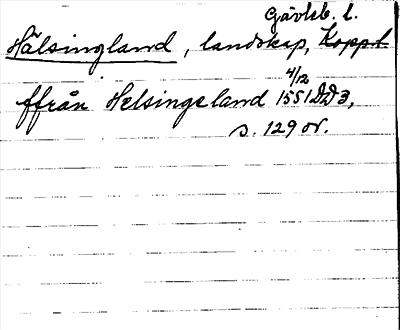 Gävleb. l.
Hälsingland, landskap, Koppb
4/12
ffrån Helsingeland 1551 DD3,
s. 129 or.